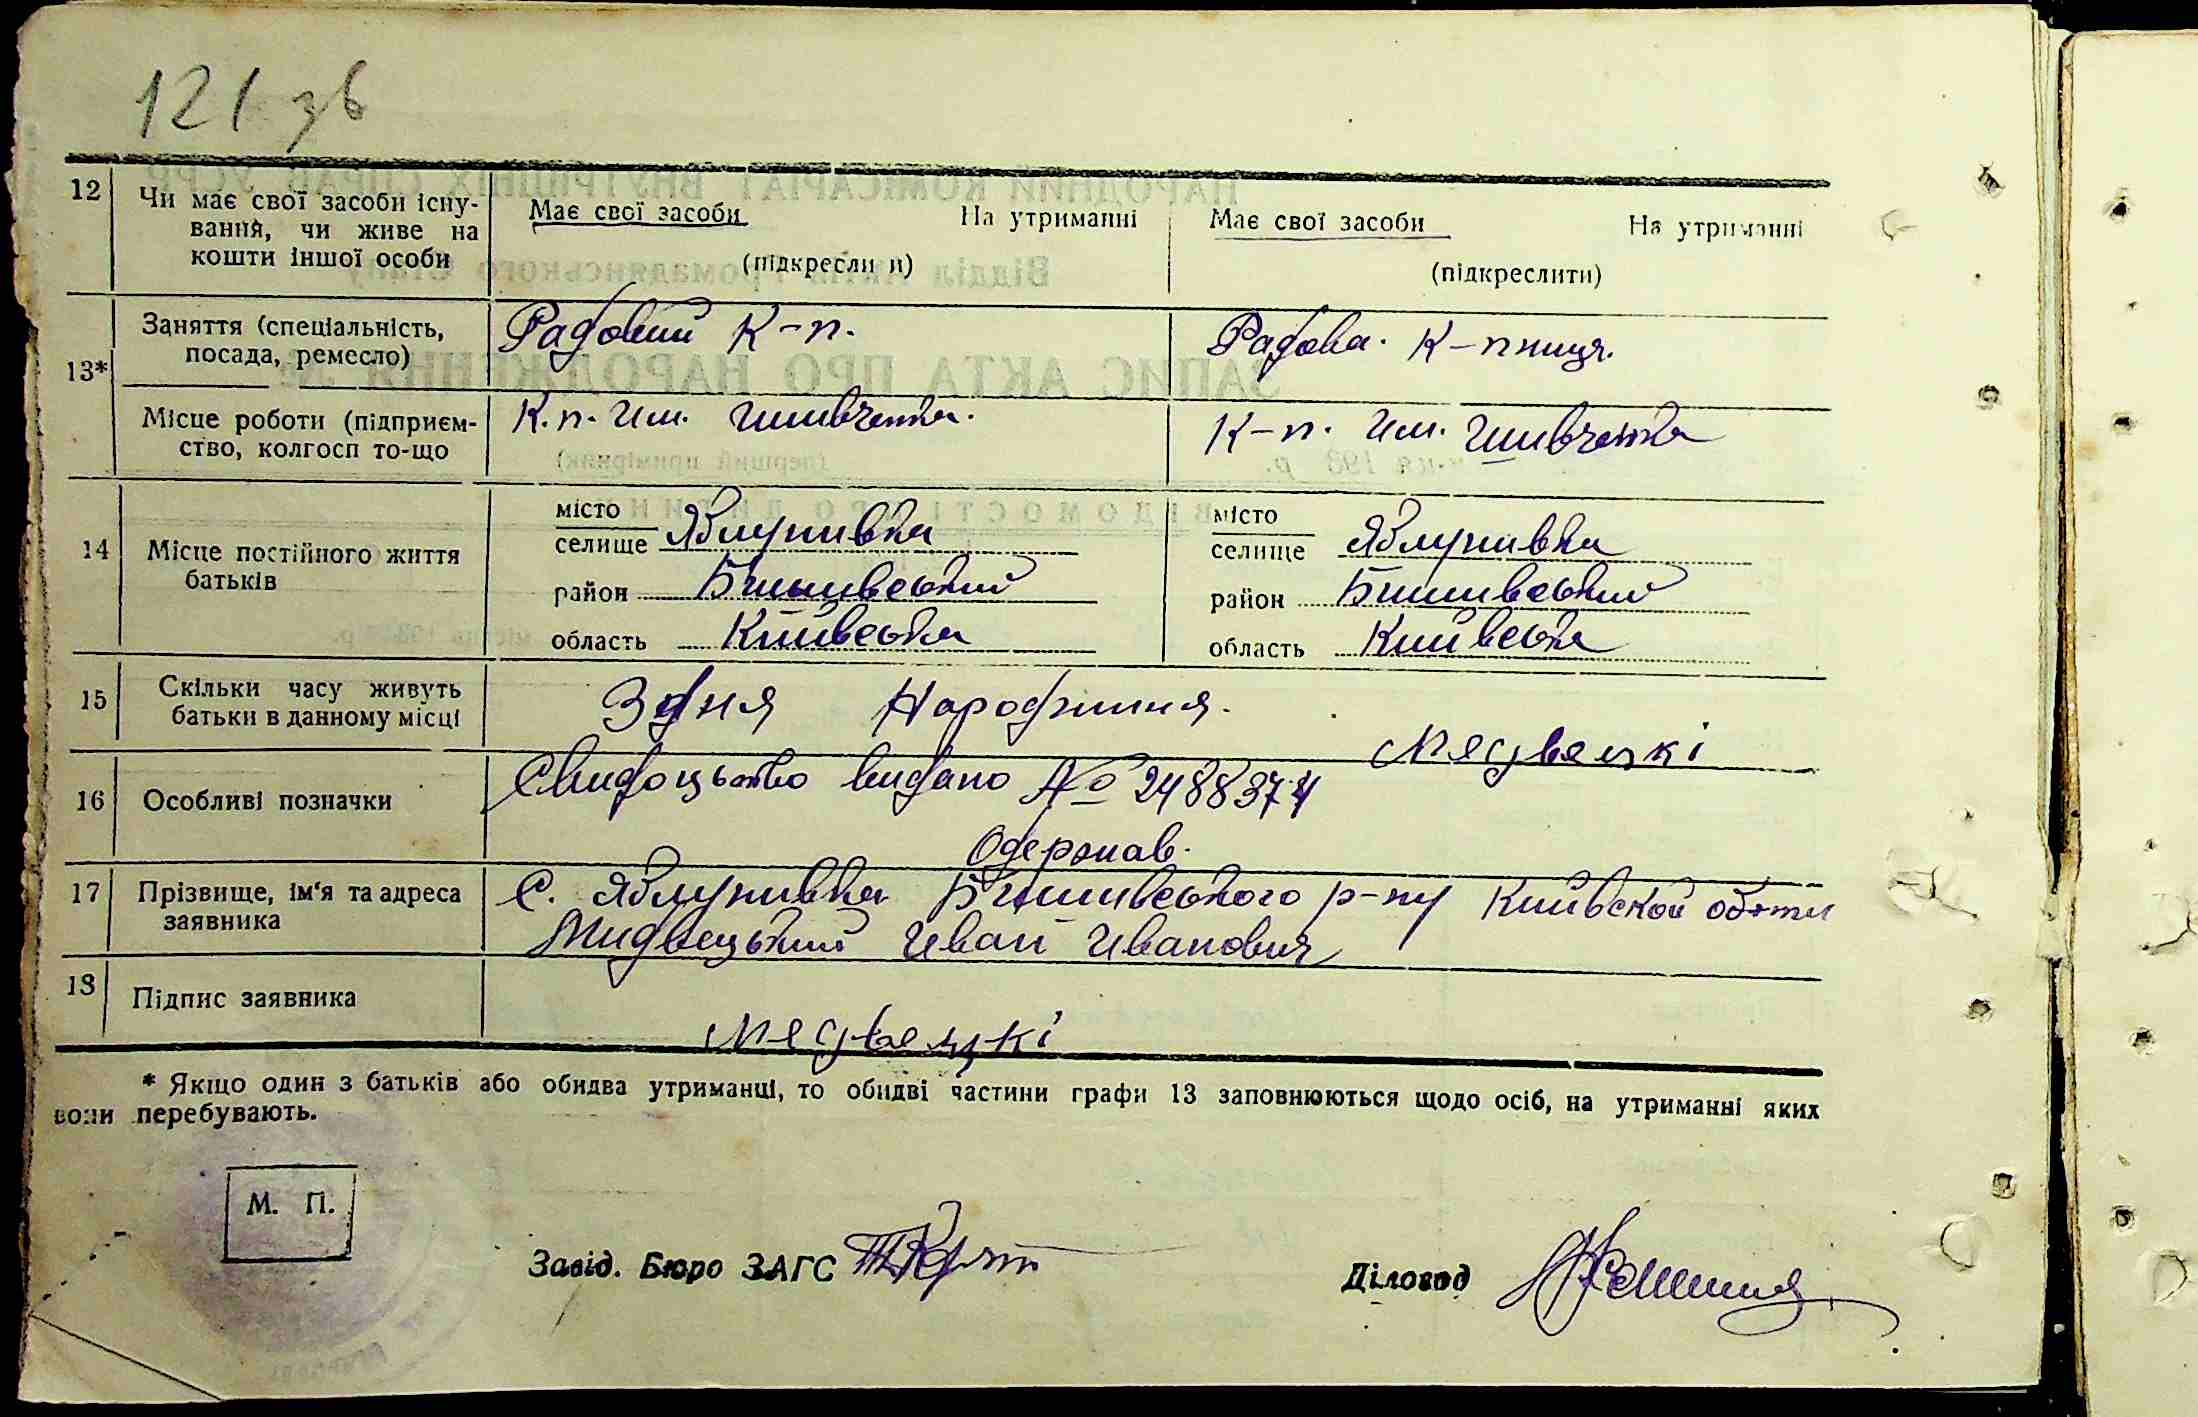 121 зв
12 Чи має свої засоби існу- Має свої засоби На утриманні Має свої засоби На утриманні
вання, чи живе на
кошти іншої особи (підкресли и) (підкреслити)
13* Заняття (спеціальність, Радовий К-п. Радова. К-пниця.
посада, ремесло)
Місце роботи (підприєм- К.п. Им. Шивченка. К-п. Им. Шивченка
ство, колгосп то-що
14 Місце постійного життя
батьків
місто місто
селище Яблунивка селище Яблунивка
район Бишивський район Бишивський
область Київська область Київська
15 Скільки часу живуть З дня Народження.
батьки в данному місці
Мядвецкі
16 Особливі позначки Свидоцьтво видано № 2488374
Одержав.
17 Прізвище, ім'я та адреса С. Яблунивка Бишивського р-ну Киивской обл
заявника Мидвецький Иван Иванович
18 Підпис заявника
Мядвецкі
* Якщо один з батьків або обидва утриманці, то обидві частини графи 13 заповнюються щодо осіб, на утриманні яких
вони перебувають.
М. П.
Завід. Бюро ЗАГС
Діловод